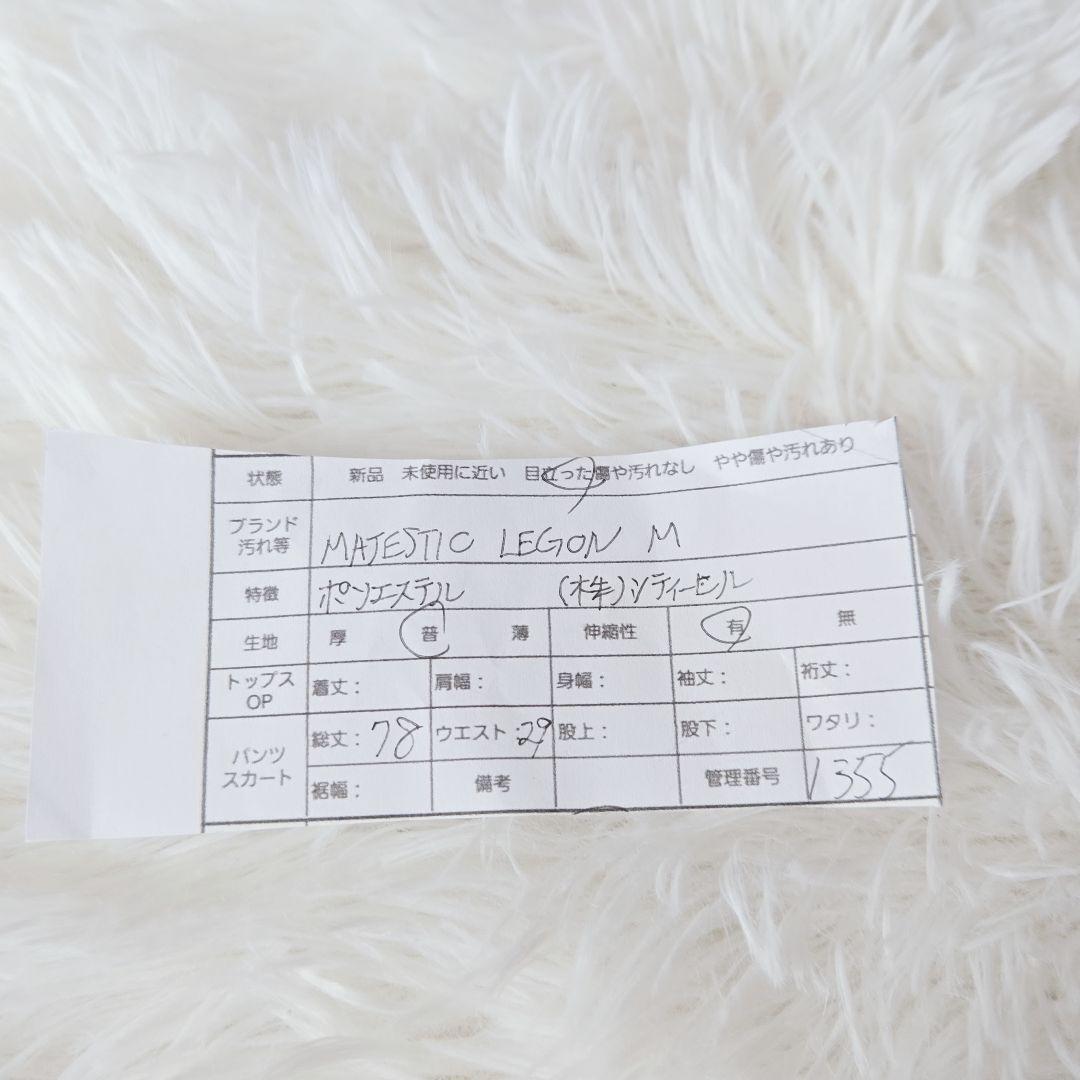 状態 新品 未使用に近い 目立った傷や汚れなし やや傷や汚れあり
ブランド
汚れ等 MAJESTIC LEGON M
特徴 ポリエステル (株)シティーヒル
生地 厚 普 薄 伸縮性 有 無
トップス
OP 着丈: 肩幅: 身幅: 袖丈: 裄丈:
パンツ
スカート 総丈:78 ウエスト:29 股上: 股下: ワタリ:
裾幅: 備考 管理番号 1355